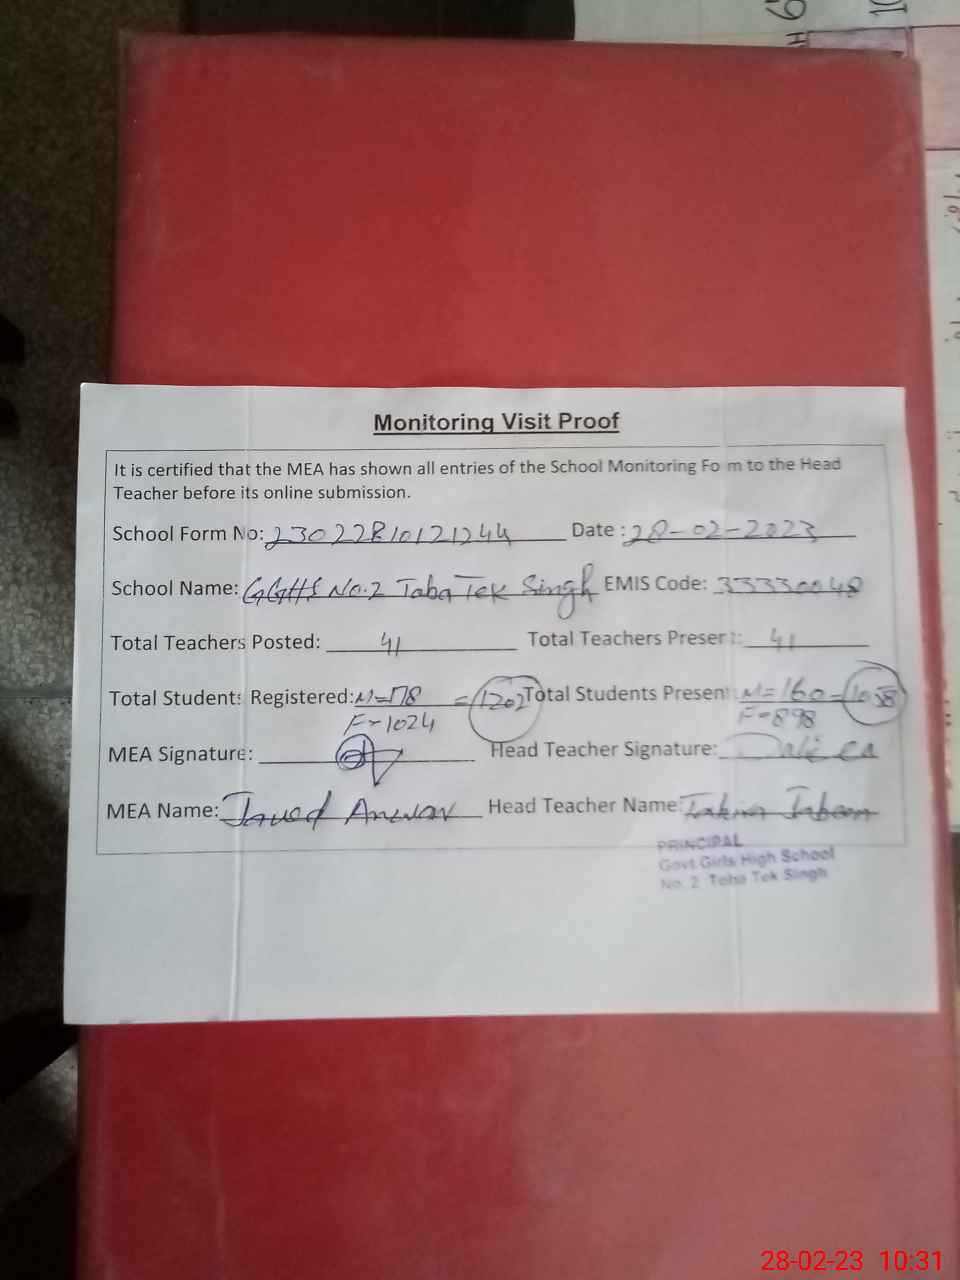 Monitoring Visit Proof
It is certified that the MEA has shown all entries of the School Monitoring Fo m to the Head
Teacher before its online submission.
School Form No: 23022810121244 Date : 28-02-2023
School Name: GGHS No.2 Toba Tek Singh EMIS Code: 33330048
Total Teachers Posted: 41 Total Teachers Present: 41
Total Students Registered: M=178 =1202 Total Students Present: M=160=1058
F=1024 F=898
MEA Signature: Head Teacher Signature:
MEA Name: Javed Anwar Head Teacher Name:
PRINCIPAL
Govt Girls High School
No. 2 Toba Tek Singh
28-02-23 10:31